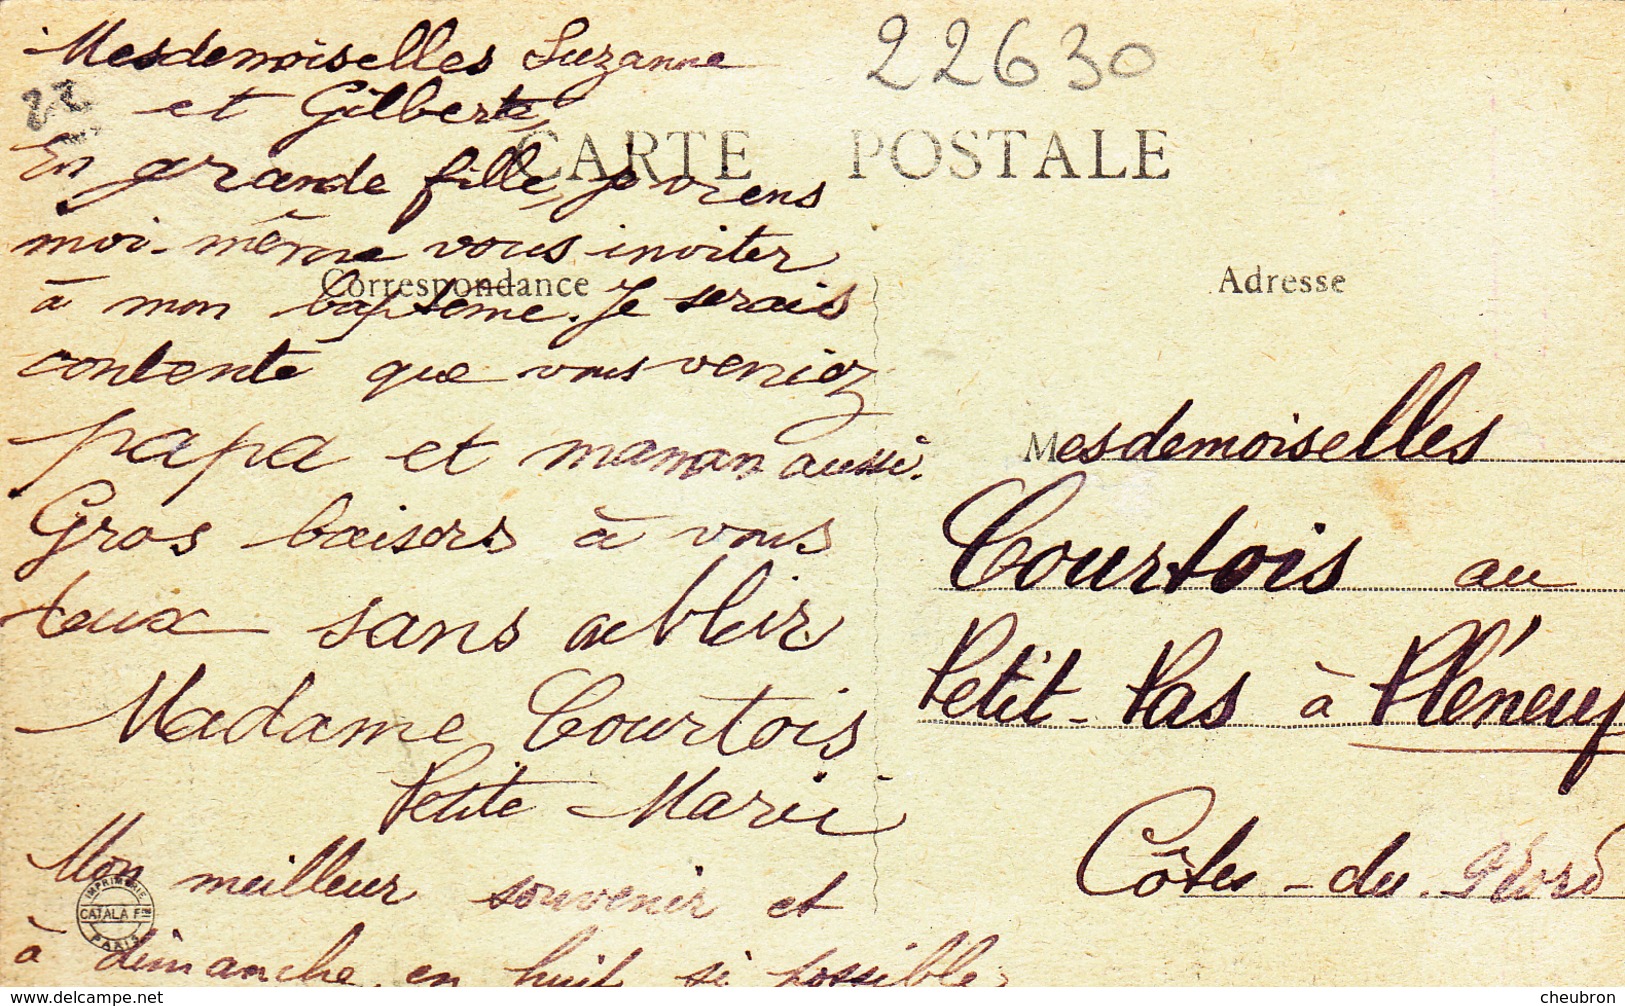 22630
22
CARTE POSTALE
Correspondance
Adresse
Mesdemoiselles Suzanne
et Gilberte,
En grande fille, je viens
moi-même vous inviter
à mon baptème. Je serais
contente que vous veniez
papa et maman aussi.
Gros baisers à vous
deux sans oublier
Madame Courtois
Petite Marie
Mon meilleur souvenir et
à dimanche en huit si possible
Mesdemoiselles
Courtois au
Petit-Pas à Pléneuf
Côtes-du-Nord
IMPRIMERIE
CATALA Fres
PARIS
www.delcampe.net
cheubron